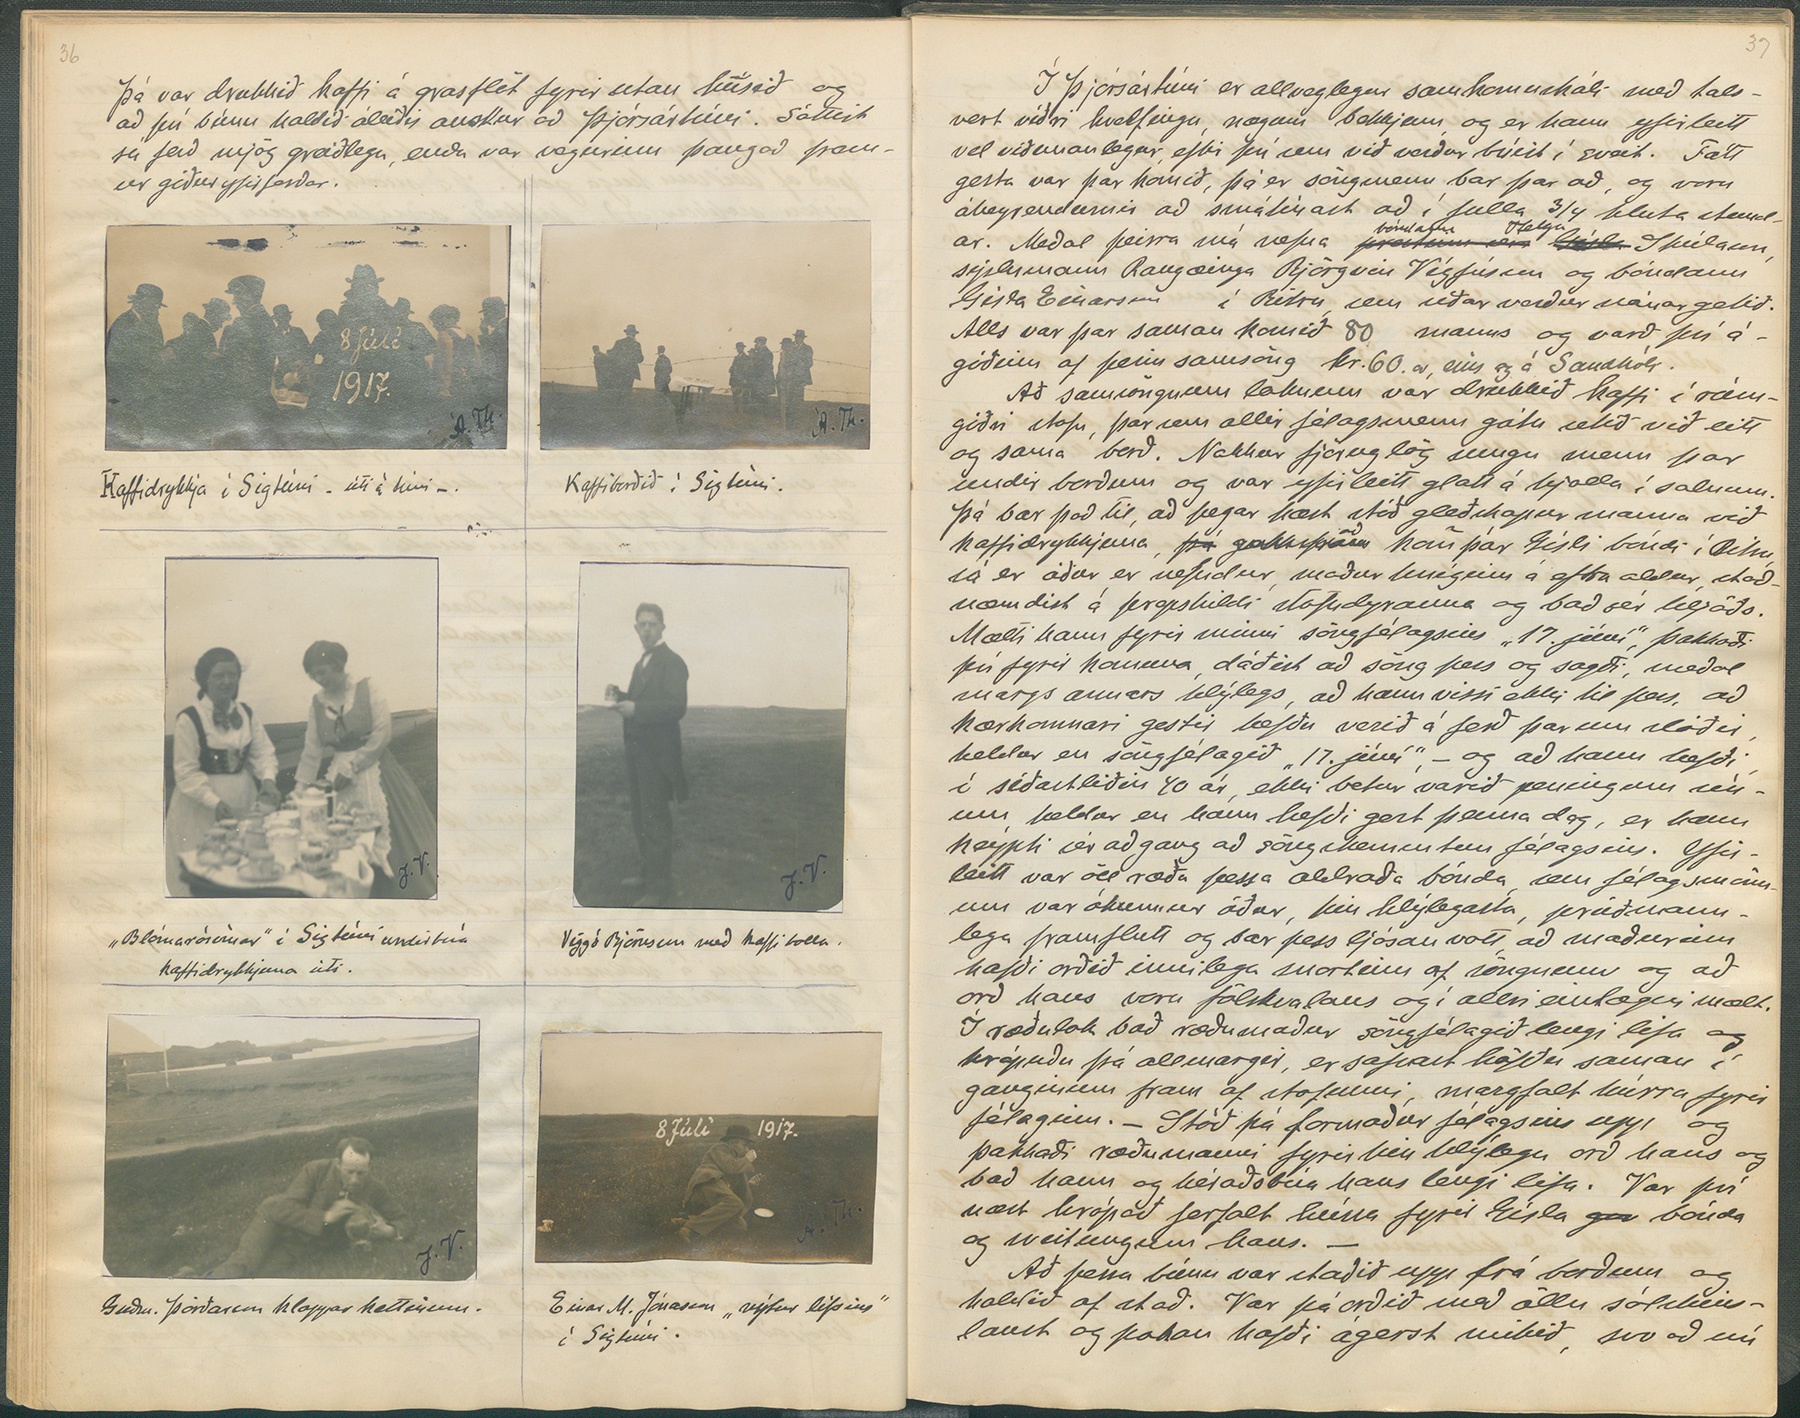 36
Þá var drukkið kaffi á grasflöt fyrir utan húsið og
að því búnu haldið áleiðis austur að Þjórsártúni. Sóttist
sú ferð mjög greiðlega, enda var vegurinn þangað fram-
ur góður yfirferðar.
8 Júlí
1917.
Á. Th.
Á. Th.
Kaffidrykkja í Sigtúni - úti á túni -.
Kaffiborðið í Sigtúni.
J. V.
J. V.
„Blómarósirnar" í Sigtúni undirbúa
kaffidrykkjuna úti.
Viggó Björnsson með kaffibolla.
J. V.
8 Júlí 1917.
Á. Th.
Guðm. Þórðarson klappar kettinum.
Einar M. Jónasson „nýtur lífsins"
í Sigtúni.
37
Í Þjórsártúni er allveglegur samkomuskáli með tals-
vert víðri hvelfingu, nægum bekkjum og er hann yfirleitt
vel viðunanlegur, eftir því sem við verður búist í sveit. Fátt
gesta var þar komið, þá er söngmenn bar þar að, og voru
áheyrendurnir að smátínast að í fulla 3/4 hluta stund-
ar. Meðal þeirra má nefna bóndann Helga Skúlason,
sýslumann Rangæinga Björgvin Vigfússon og bóndann
Gísla Einarsson í Bitru, sem síðar verður nánar getið.
Alls var þar saman komið 80 manns og varð því á-
góðinn af þeim samsöng kr. 60. , eins og á Sandhól.
Að samsöngnum loknum var drukkið kaffi í rúm-
góðri stofu, þar sem allir félagsmenn gátu setið við eitt
og sama borð. Nokkur fjörug lög sungu menn þar
undir borðum og var yfirleitt glatt á hjalla í salnum.
Þá bar það til, að þegar hæst stóð gleðskapur manna við
kaffidrykkjuna, að kom þar Gísli bóndi í Bitru,
sá er áður er nefndur, maður hniginn á efra aldur, stað-
næmdist á þrepskildi stofudyranna og bað sér hljóðs.
Mælti hann fyrir minni söngfélagsins „17. júní", þakkaði
því fyrir komuna, dáðist að söng þess og sagði, meðal
margs annars hlýlegs, að hann vissi ekki til þess, að
kærkomnari gestir hefðu verið á ferð þar um slóðir,
heldur en söngfélagið „17. júní", - og að hann hefði,
í síðastliðin 40 ár, ekki betur varið peningum sín-
um heldur en hann hefði gert þenna dag, er hann
keypti sér aðgang að söngskemmtun félagsins. Yfir-
leitt var öll ræða þessa aldraða bónda, sem félagsmönn-
um var ókunnur áður, hin hlýlegasta, prúðmann-
lega framflutt og bar þess ljósan vott, að maðurinn
hafði orðið innilega snortinn af söngnum og að
orð hans voru fölskvalaus og í allri einlægni mælt.
Í ræðulok bað ræðumaður söngfélagið lengi lifa og
hrópuðu þá allmargir, er safnast höfðu saman í
ganginum fram af stofunni, margfalt húrra fyrir
félaginu. - Stóð þá formaður félagsins upp og
þakkaði ræðumanni fyrir hin hlýlegu orð hans og
bað hann og héraðsbúa hans lengi lifa. Var því
næst hrópað ferfalt húrra fyrir Gísla bónda
og sveitungum hans. -
Að þessu búnu var staðið upp frá borðum og
haldið af stað. Var þá orðið með öllu sólskins-
laust og þokan hafði ágerst mikið, svo að nú